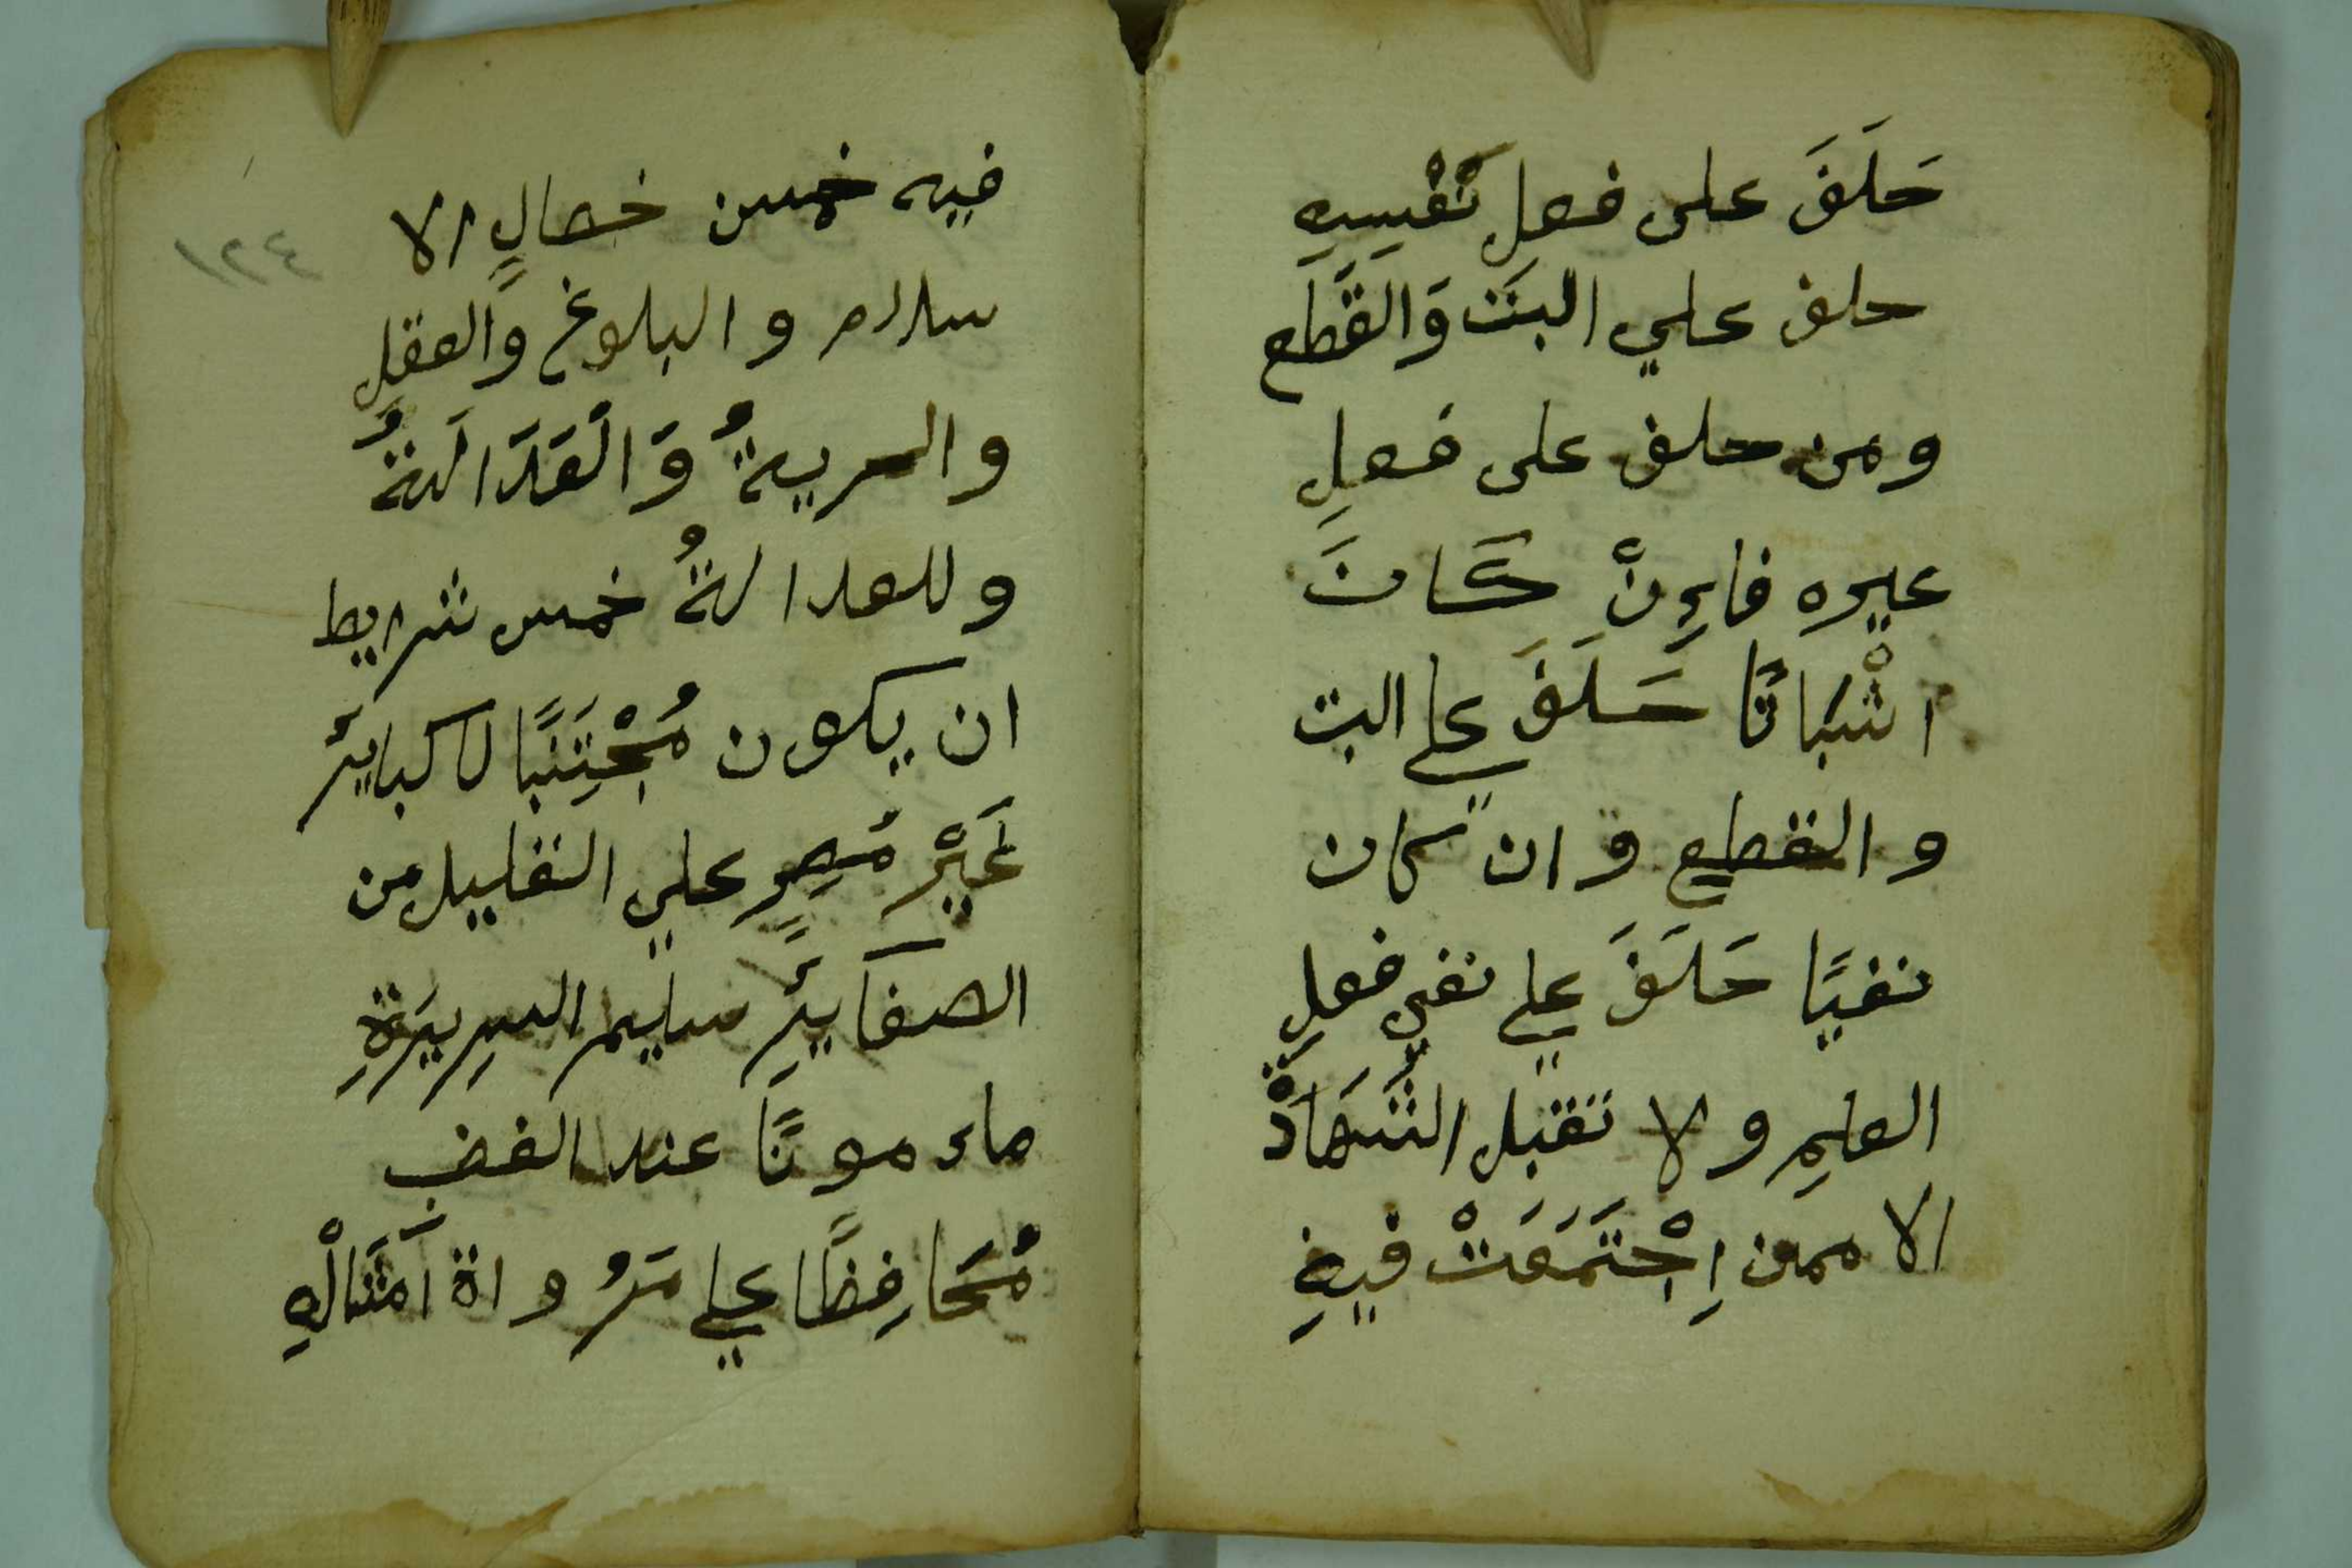 حَلَفَ على فعلِ نَفْسِهِ
حلف علي البتَت وَالقَطَع
ومن حلف على فعلِ
غيره فاءِنْ كَانَ
اثْبَاتًا حَلَفَ علي البت
والقطع وان كان
نفيًا حَلَفَ علي نفي فعلِ
العلمِ ولا تقبل الشَهَادْة
الا ممن اِجْتَمَعَتْ فيهِ
فيه خمس خصالٍ الا
سلام والبلوغ وَالعقلِ
والحريةُ وَالْعَدَالَةُ
وللعدالةُ خمس شرايط
ان يكون مُجْتَنِبًا لاكبايرَ
غَيْرَ مُصِرٍ علي القليل من
الصغَايرِ سليم السرِيرَةِ
ماءمونًا عند الغضبِ
مُحَافِظًا علي مَرُواة اَمثَالْهِ
١٢٤